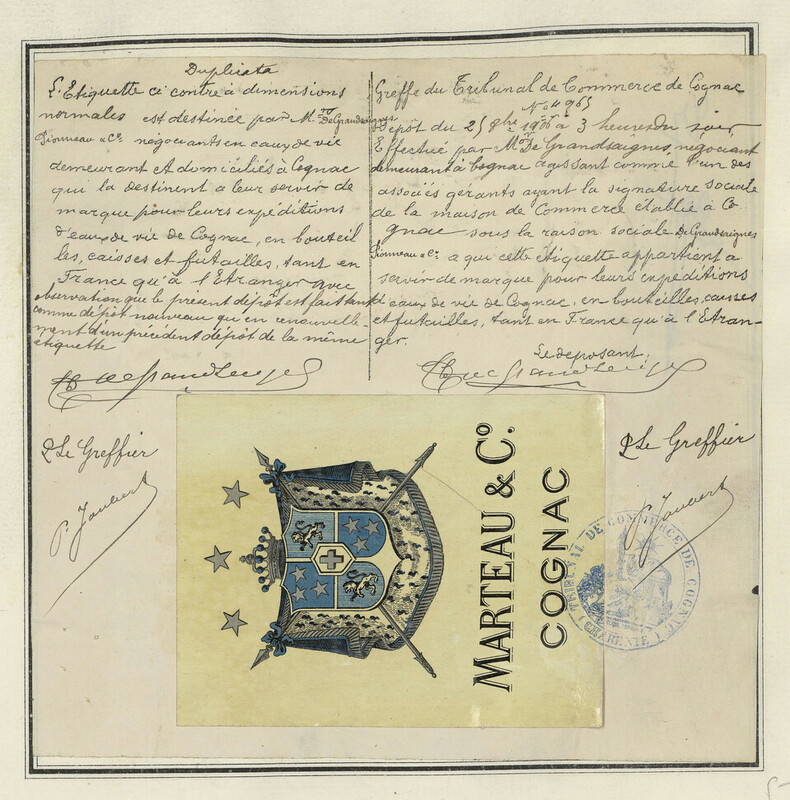 Duplicata
L'Etiquette ci contre à dimensions
normales est destinée par Mrs De Grandsaignes
Pionneau & Co. négociants en eaux de vie
demeurant et domiciliés à Cognac
qui la destinent à leur servir de
marque pour leurs expéditions
d'eaux de vie de Cognac, en bouteil
les, caisses et futailles, tant en
France qu'à l'Etranger avec
observation que le présent dépôt est fait tant
comme dépôt nouveau qu'en renouvelle-
ment d'un précédent dépôt de la même
étiquette
Greffe du Tribunal de Commerce de Cognac
No 4965
Dépôt du 25 8bre à 3 heures du soir
Effectué par Mr De Grandsaignes, négociant
demeurant à Cognac agissant comme l'un des
associés gérants ayant la signature sociale
de la maison de Commerce établie à Co
gnac sous la raison sociale De Grandsaignes
Pionneau & Co. à qui cette étiquette appartient à
servir de marque pour leurs expéditions
d'eaux de vie de Cognac, en bouteilles, caisses
et futailles, tant en France qu'à l'Etran-
ger.
Le déposant,
Le Greffier
P. Jaubert
Le Greffier
P. Jaubert
MARTEAU & Co.
COGNAC
TRIBUNAL DE COMMERCE DE COGNAC
(CHARENTE)